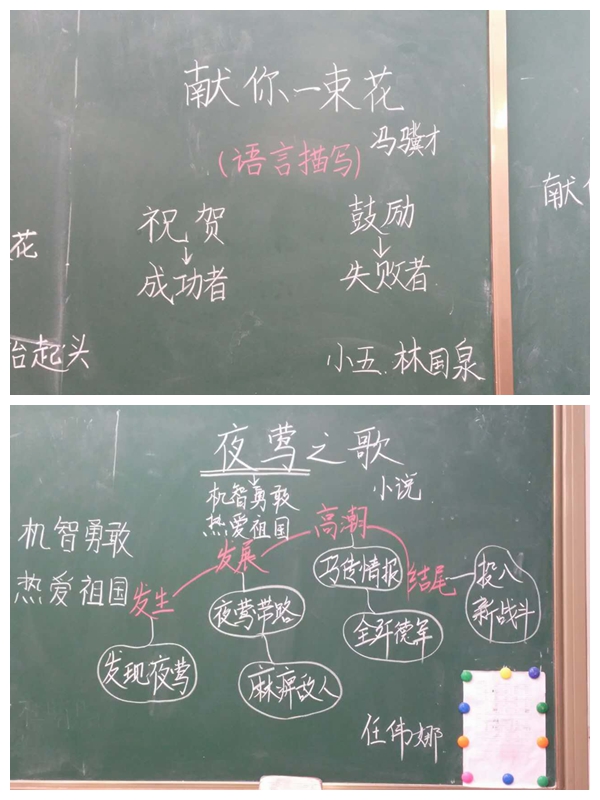 献你一束花
冯骥才
(语言描写)
祝贺 鼓励
↓ ↓
成功者 失败者
小五.林国泉
花
抬起头
献你
夜莺之歌
↓
机智勇敢
热爱祖国
小说
机智勇敢
热爱祖国
发生
发展
高潮
结尾
发现夜莺
夜莺带路
麻痹敌人
巧传情报
全歼德军
投入
新战斗
任伟娜